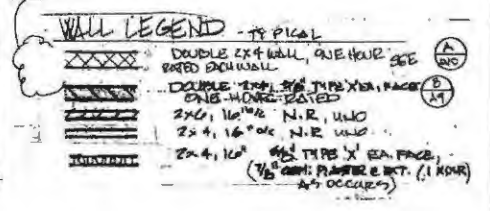 WALL LEGEND - TYPICAL
DOUBLE 2X4 WALL, ONE HOUR SEE A
RATED EACH WALL
DOUBLE 2X4, 5/8" TYPE 'X' EA. FACE B
ONE-HOUR-RATED A9
2x6, 16" o/c N.R, UNO
2x4, 16" o/c N.R UNO
2x4, 16" 5/8" TYPE 'X' EA. FACE,
(7/8" CEM. PLASTER @ EXT. (1 HOUR)
AS OCCURS)